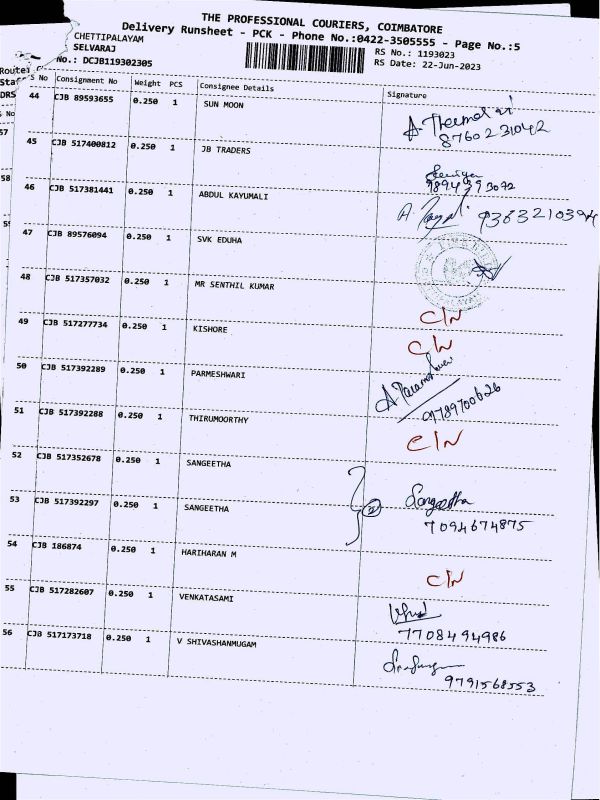 THE PROFESSIONAL COURIERS, COIMBATORE
Delivery Runsheet - PCK - Phone No.:0422-3505555 - Page No.:5
CHETTIPALAYAM
SELVARAJ
No.: DCJB119302305
RS No.: 1193023
RS Date: 22-Jun-2023
Route
Staf
DRS
S No Consignment No Weight PCS Consignee Details Signature
44 CJB 89593655 0.250 1 SUN MOON
8760231042
45 CJB 517400812 0.250 1 JB TRADERS
9894393072
46 CJB 517381441 0.250 1 ABDUL KAYUMALI 9383210394
47 CJB 89576094 0.250 1 SVK EDUHA
48 CJB 517357032 0.250 1 MR SENTHIL KUMAR C/N
49 CJB 517277734 0.250 1 KISHORE C/N
50 CJB 517392289 0.250 1 PARMESHWARI
9789700626
51 CJB 517392288 0.250 1 THIRUMOORTHY C/N
52 CJB 517352678 0.250 1 SANGEETHA
53 CJB 517392297 0.250 1 SANGEETHA Sangeetha
7094674875
54 CJB 186874 0.250 1 HARIHARAN M C/N
55 CJB 517282607 0.250 1 VENKATASAMI
7708494986
56 CJB 517173718 0.250 1 V SHIVASHANMUGAM
9791568553
S No
57
58